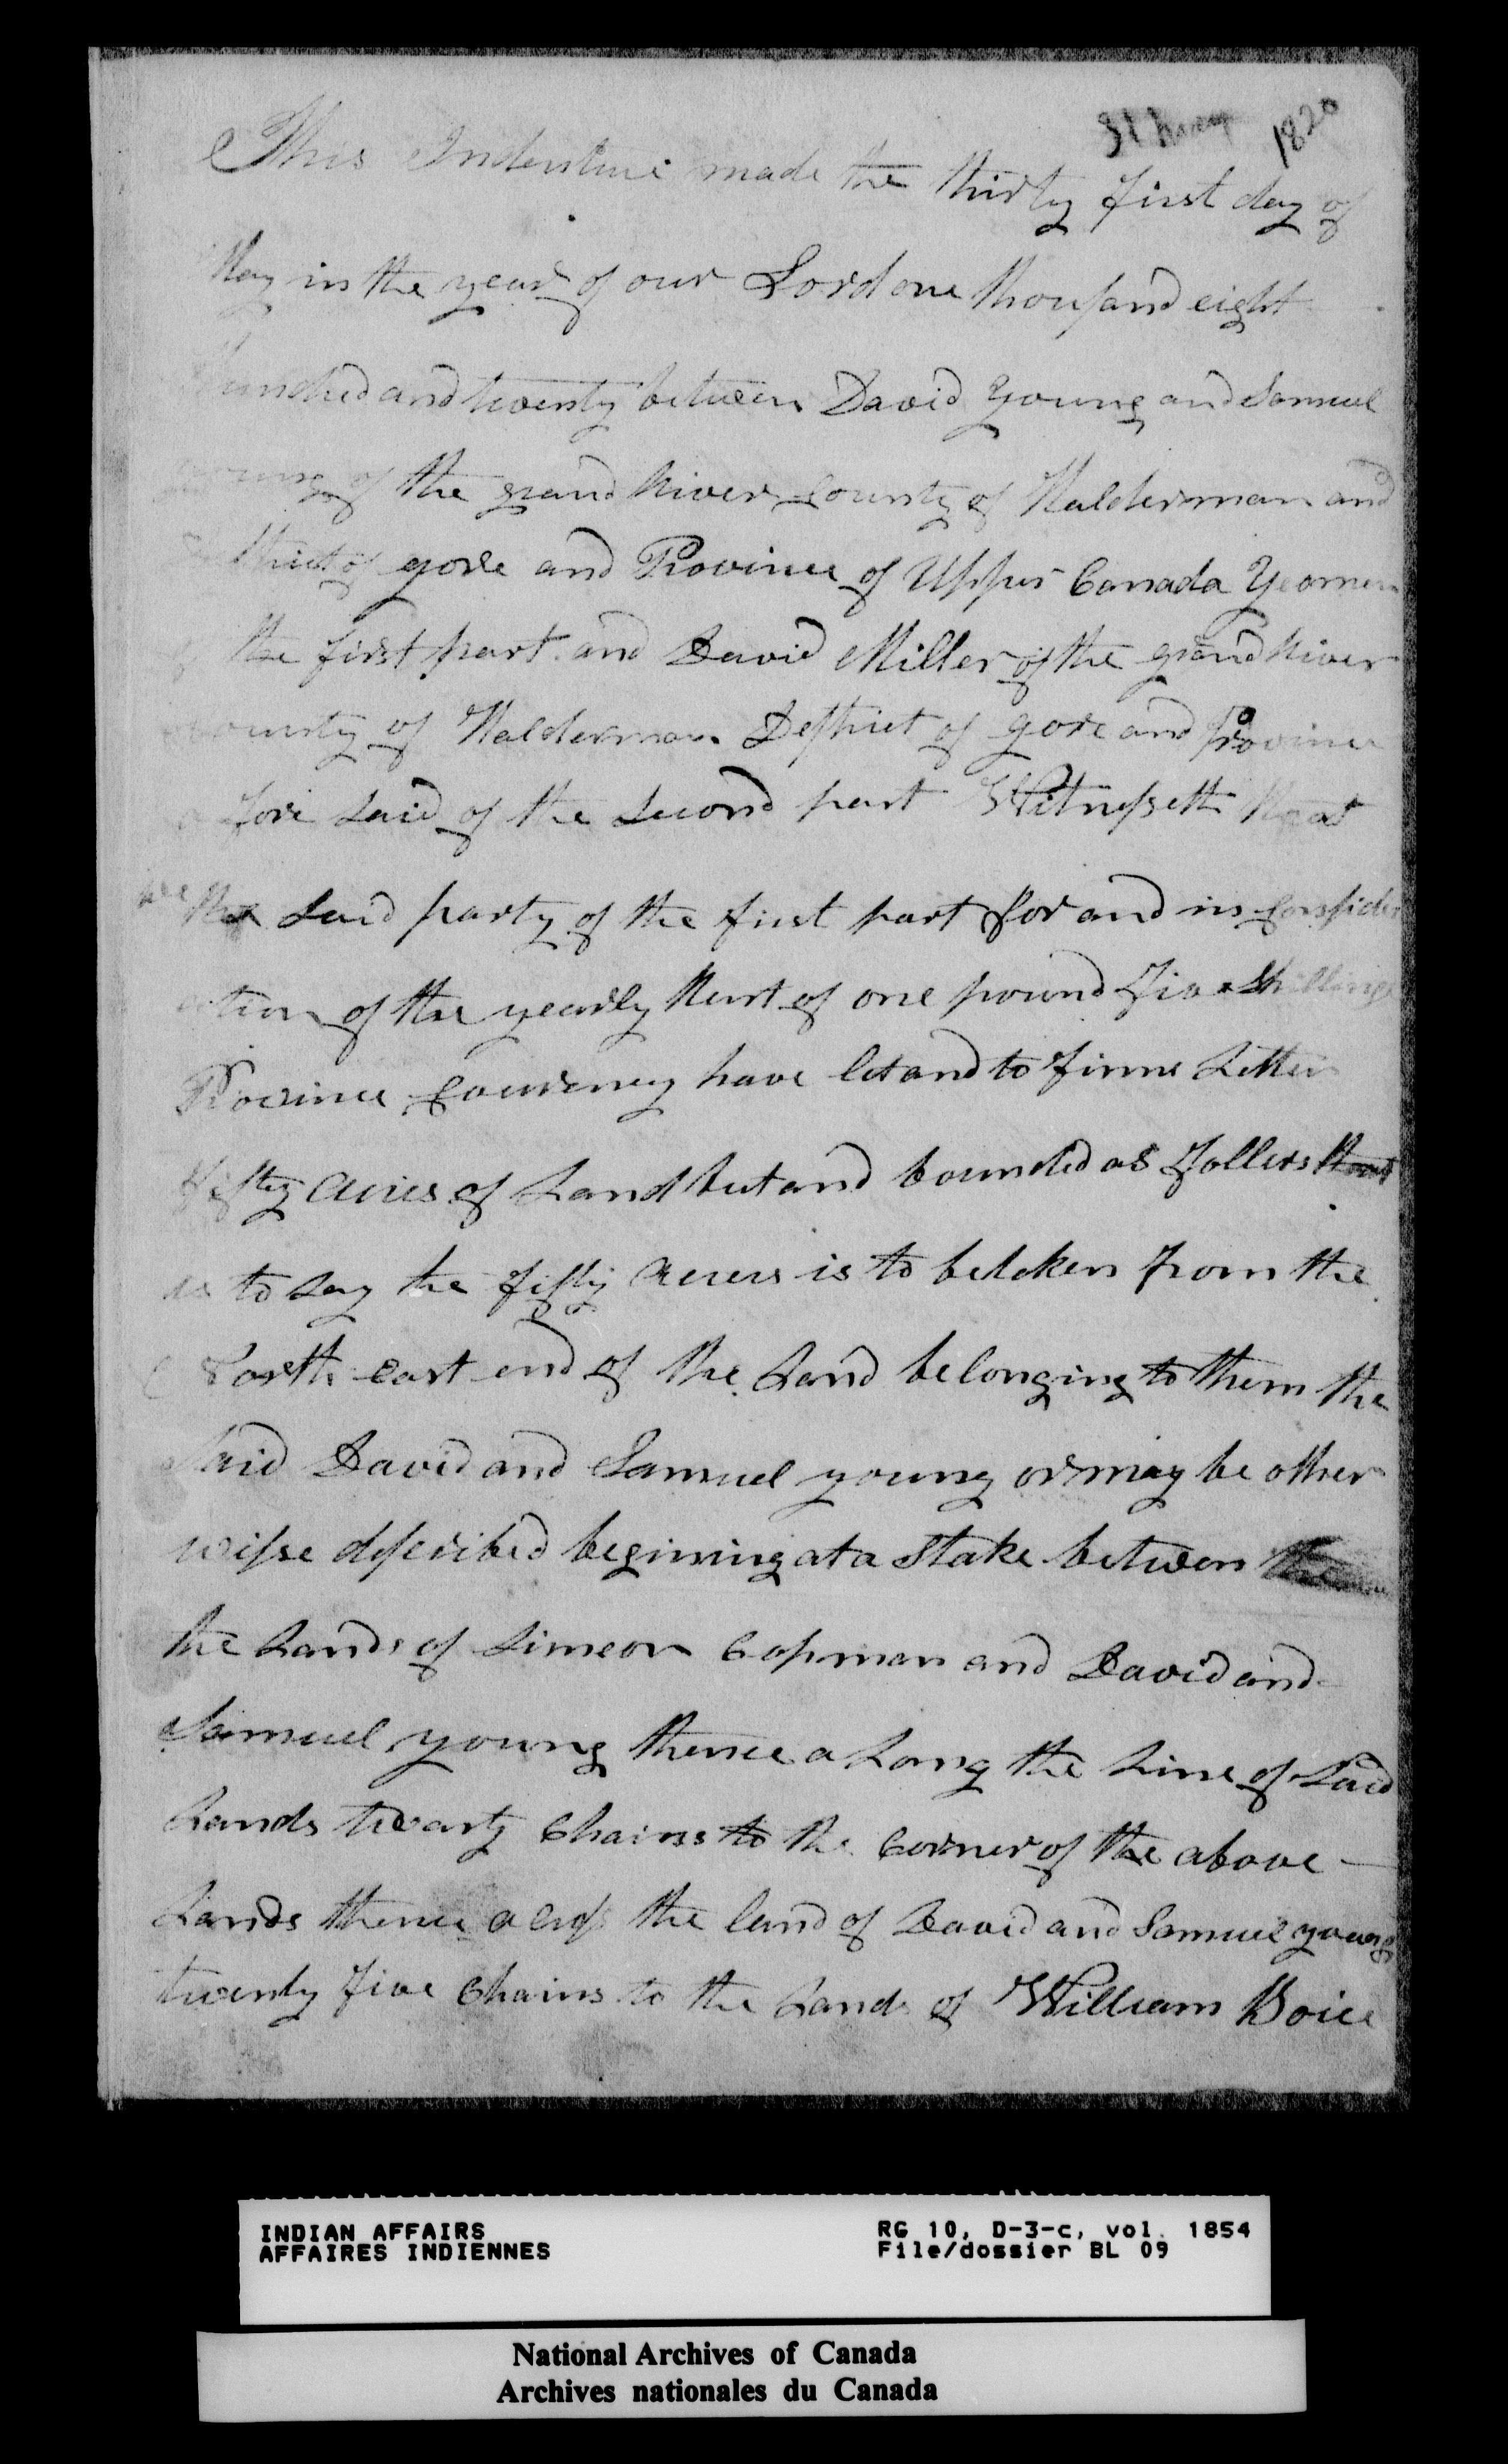 31 May 1820
This Indenture made the thirty first day of
May in the year of our Lord one thousand eight
Hundred and twenty between David Young and Samuel
young of the grand River County of Halderman and
District of gore and Province of Upper Canada Yeomen
the first part and David Miller of the grand River
County of Halderman District of gore and Province
afore said of the second part Witnesseth that
we the said party of the first part for and in consider
ation of the yearly Rent of one pound five shillings
Province Courency have let and to firme Letten
fifty acres of Land but and bounded as follers that
is to say the fifty acrers is to be teken from the
North east end of the Land belonging to them the
said David and Samuel young or may be other
wisse described begining at a Stake between the
the Lands of Simeon Copman and David and
Samuel young thence a Long the Line of said
Lands twenty Chains to the Corner of the above
Lands thence across the land of David and Samuel young
twenty five Chains to the Lands of William Boice
INDIAN AFFAIRS RG 10, D-3-c, vol. 1854
AFFAIRES INDIENNES File/dossier BL 09
National Archives of Canada
Archives nationales du Canada